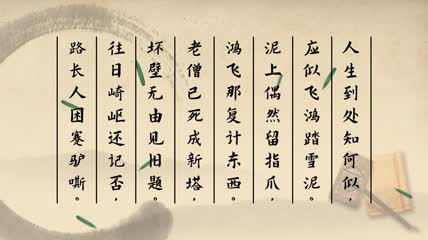 人生到处知何似，
应似飞鸿踏雪泥。
泥上偶然留指爪，
鸿飞那复计东西。
老僧已死成新塔，
坏壁无由见旧题。
往日崎岖还记否，
路长人困蹇驴嘶。